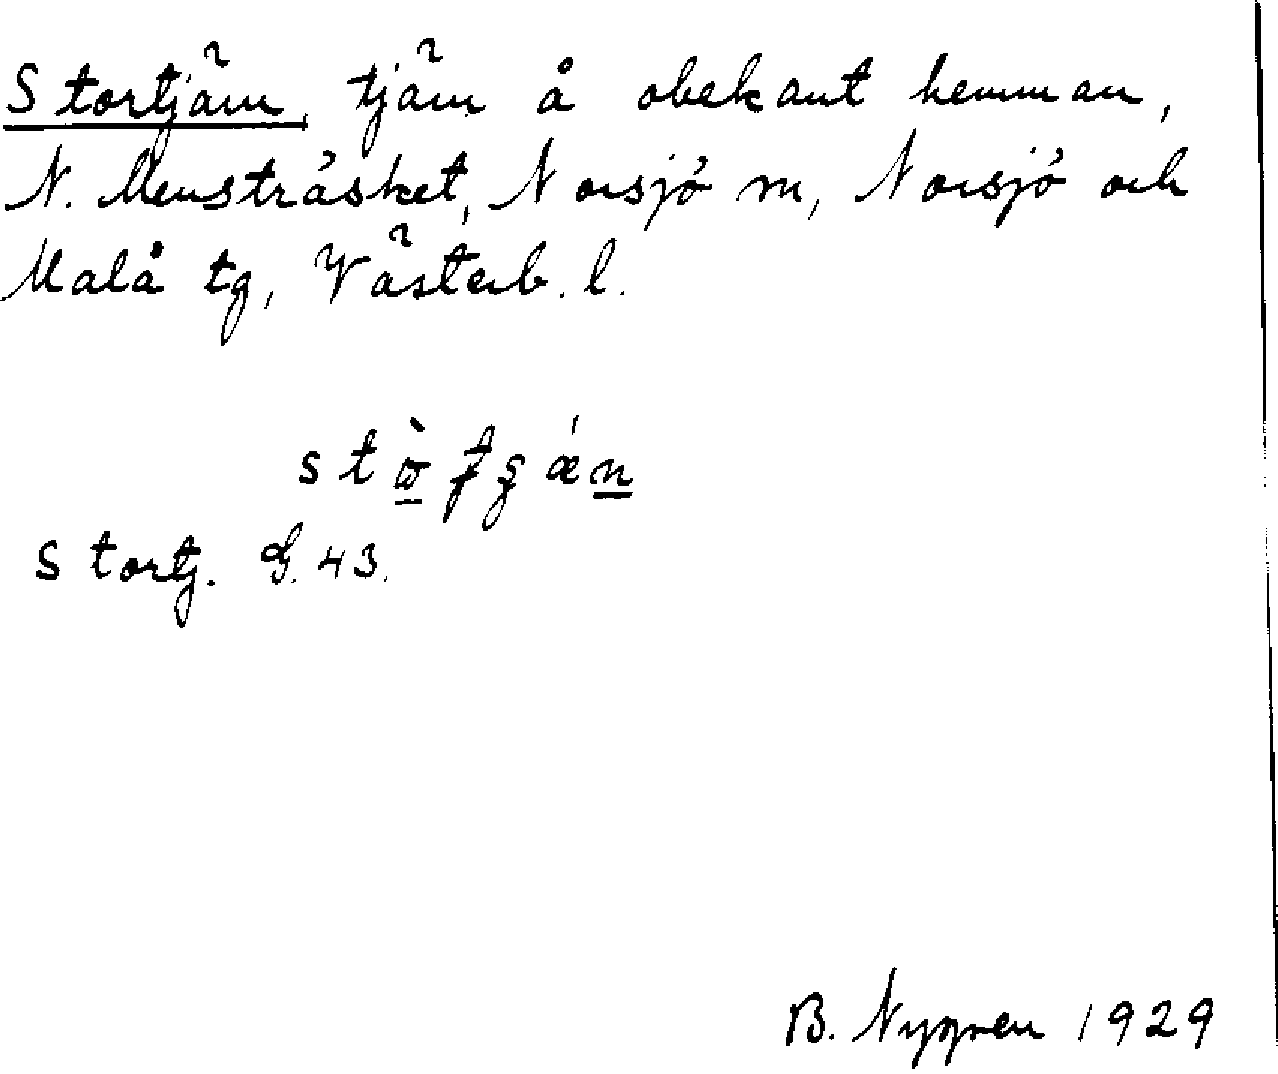 Stortjärn, tjärn å obekant hemman,
N. Mensträsket, Norsjö sn, Norsjö och
Malå tg, Västerb. l.
Stortj. G. 43.
B. Nygren 1929